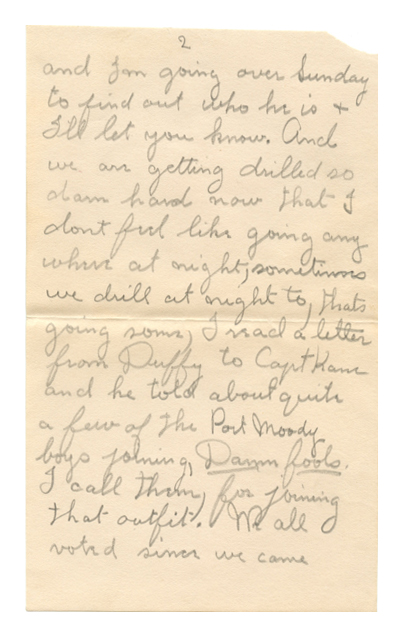 2
and I'm going over Sunday
to find out who he is +
I'll let you know. And
we are getting drilled so
darn hard now that I
dont feel like going any
where at night, sometimes
we drill at night to, thats
going some, I read a letter
from Duffy to Capt Kane
and he told about quite
a few of the Port Moody
boys joining, Damn fools.
I call them, for joining
that outfit. We all
voted since we came